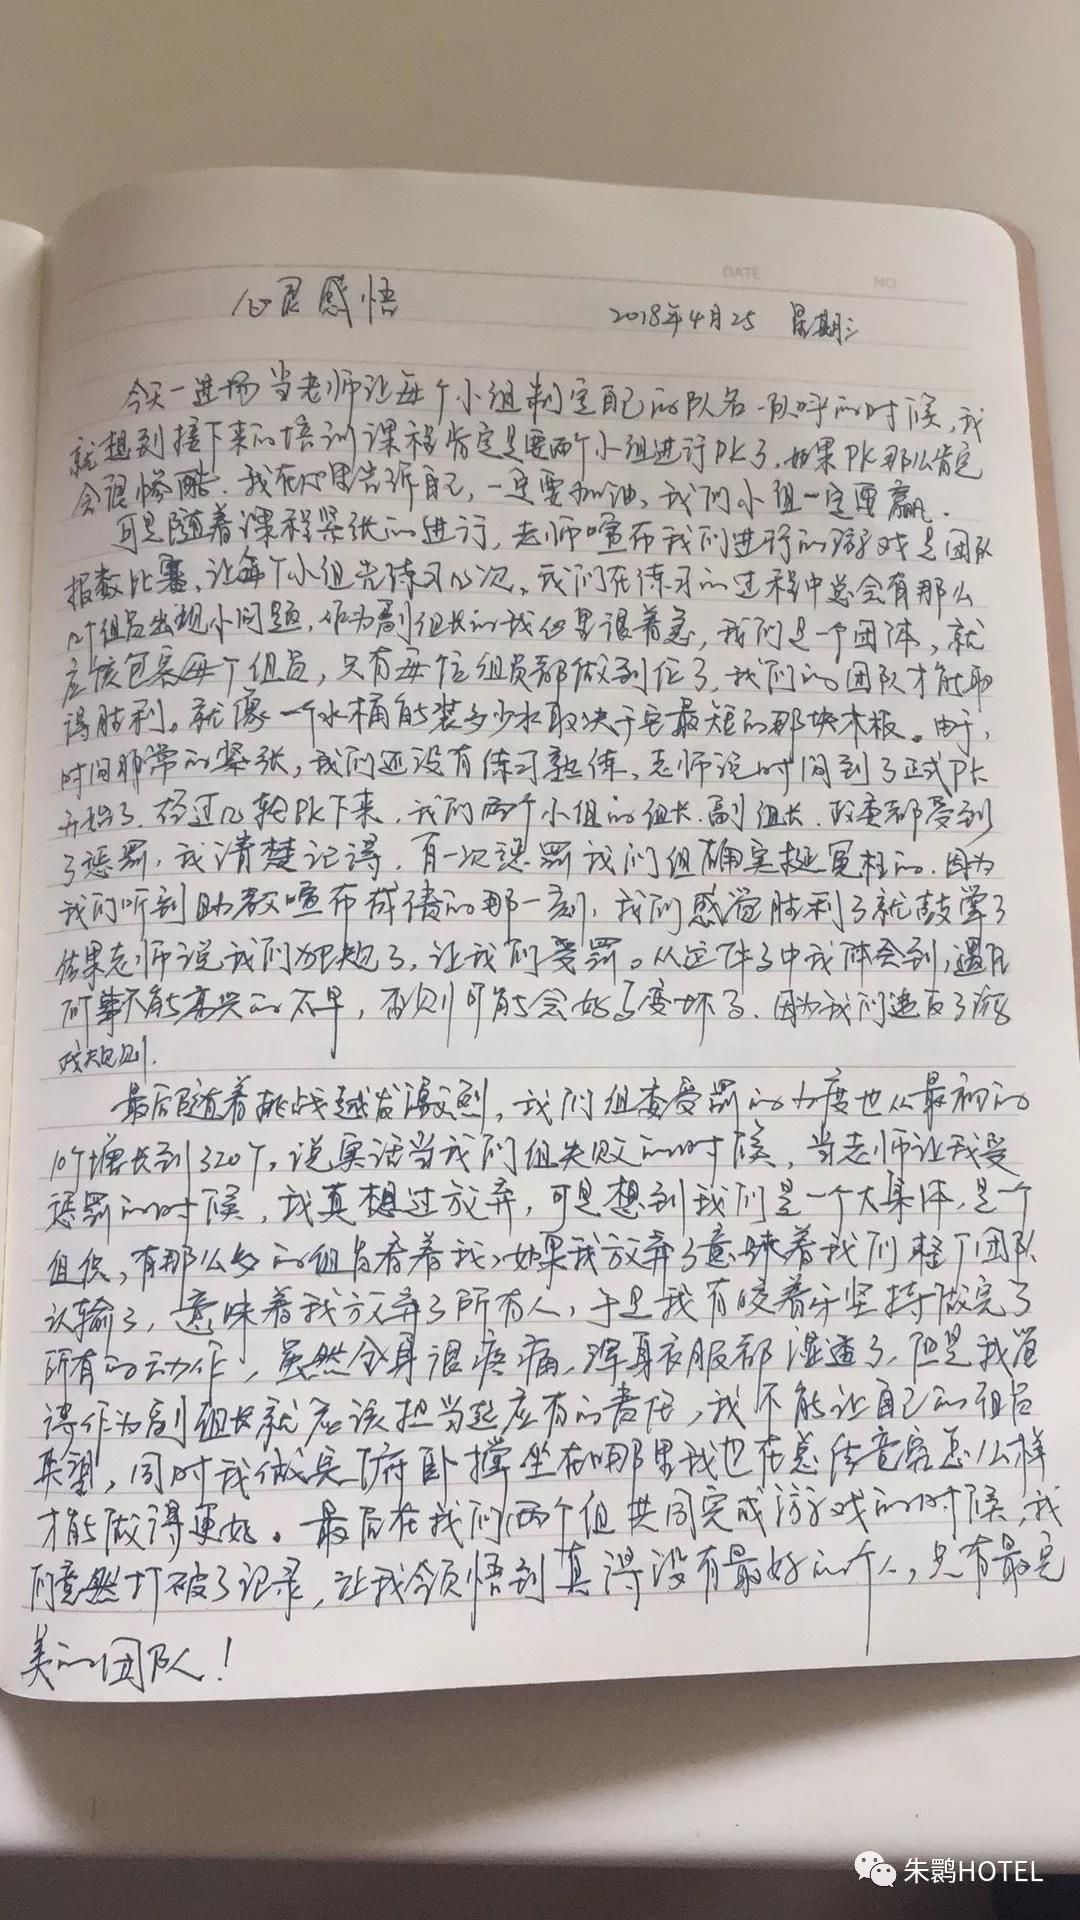 DATE
NO
心灵感悟
2018年4月25 星期三
今天一进场当老师让每个小组制定自己的队名、队呼的时候,我
就想到接下来的培训课程肯定是要两个小组进行PK了,如果PK那么肯定
会很惨酷、我在心里告诉自己,一定要加油,我们小组一定要赢.
可是随着课程紧张的进行,老师喧布我们进行的游戏是团队
报数比赛,让每个小组先练习几次,我们在练习的过程中总会有那么
几个组员出现小问题,作为副组长的我心里很着急,我们是一个团体,就
应该包容每个组员,只有每位组员都做到位了,我们的团队才能取
得胜利。就像一个水桶能装多少水取决于它最短的那块木板。由于
时间非常的紧张,我们还没有练习熟练,老师说时间到了正式PK
开始了.经过几轮PK下来,我们两个小组的组长.副组长.政委都受到
了惩罚,我清楚记得.有一次惩罚我们组确实挺冤枉的.因为
我们听到助教喧布成绩的那一刻,我们感觉胜利了就鼓掌了
结果老师说我们犯规了,让我们受罚。从这件事中我体会到,遇见
何事不能高兴的太早,否则可能会好事变坏事.因为我们违反了游
戏规则.
最后随着挑战越发激烈,我们组委受罚的力度也从最初的
10个增长到320个,说实话当我们组失败的时候,当老师让我受
惩罚的时候,我真想过放弃,可是想到我们是一个大集体,是一个
组织,有那么多的组员看着我,如果我放弃了意味着我们整个团队
认输了,意味着我放弃了所有人,于是我有咬着牙坚持做完了
所有的动作,虽然全身很疼痛,浑身衣服都湿透了,但是我觉
得作为副组长就应该担当起应有的责任,我不能让自己的组员
失望,同时我做完俯卧撑坐在哪里我也在总结竟究怎么样
才能做得更好。最后在我们两个组共同完成游戏的时候,我
们竟然打破了记录,让我领悟到真得没有最好的个人,只有最完
美的团队!
朱鹮HOTEL